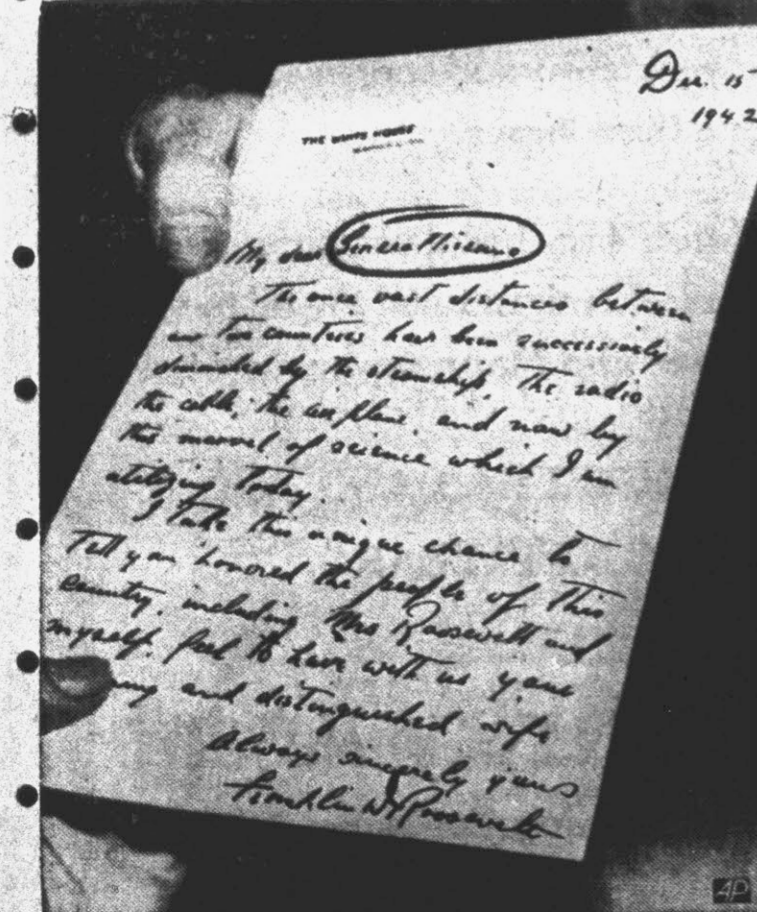 Dec. 15
1942
THE WHITE HOUSE
WASHINGTON
My dear
The once vast distances between
our two countries have been successively
diminished by the steamship, the radio
the cable, the airplane, and now by
this marvel of science which I am
utilizing today.
I take this unique chance to
tell you honored the people of this
country, including Mrs Roosevelt and
myself, feel to have with us your
and distinguished wife
Always sincerely yours
Franklin D Roosevelt
AP